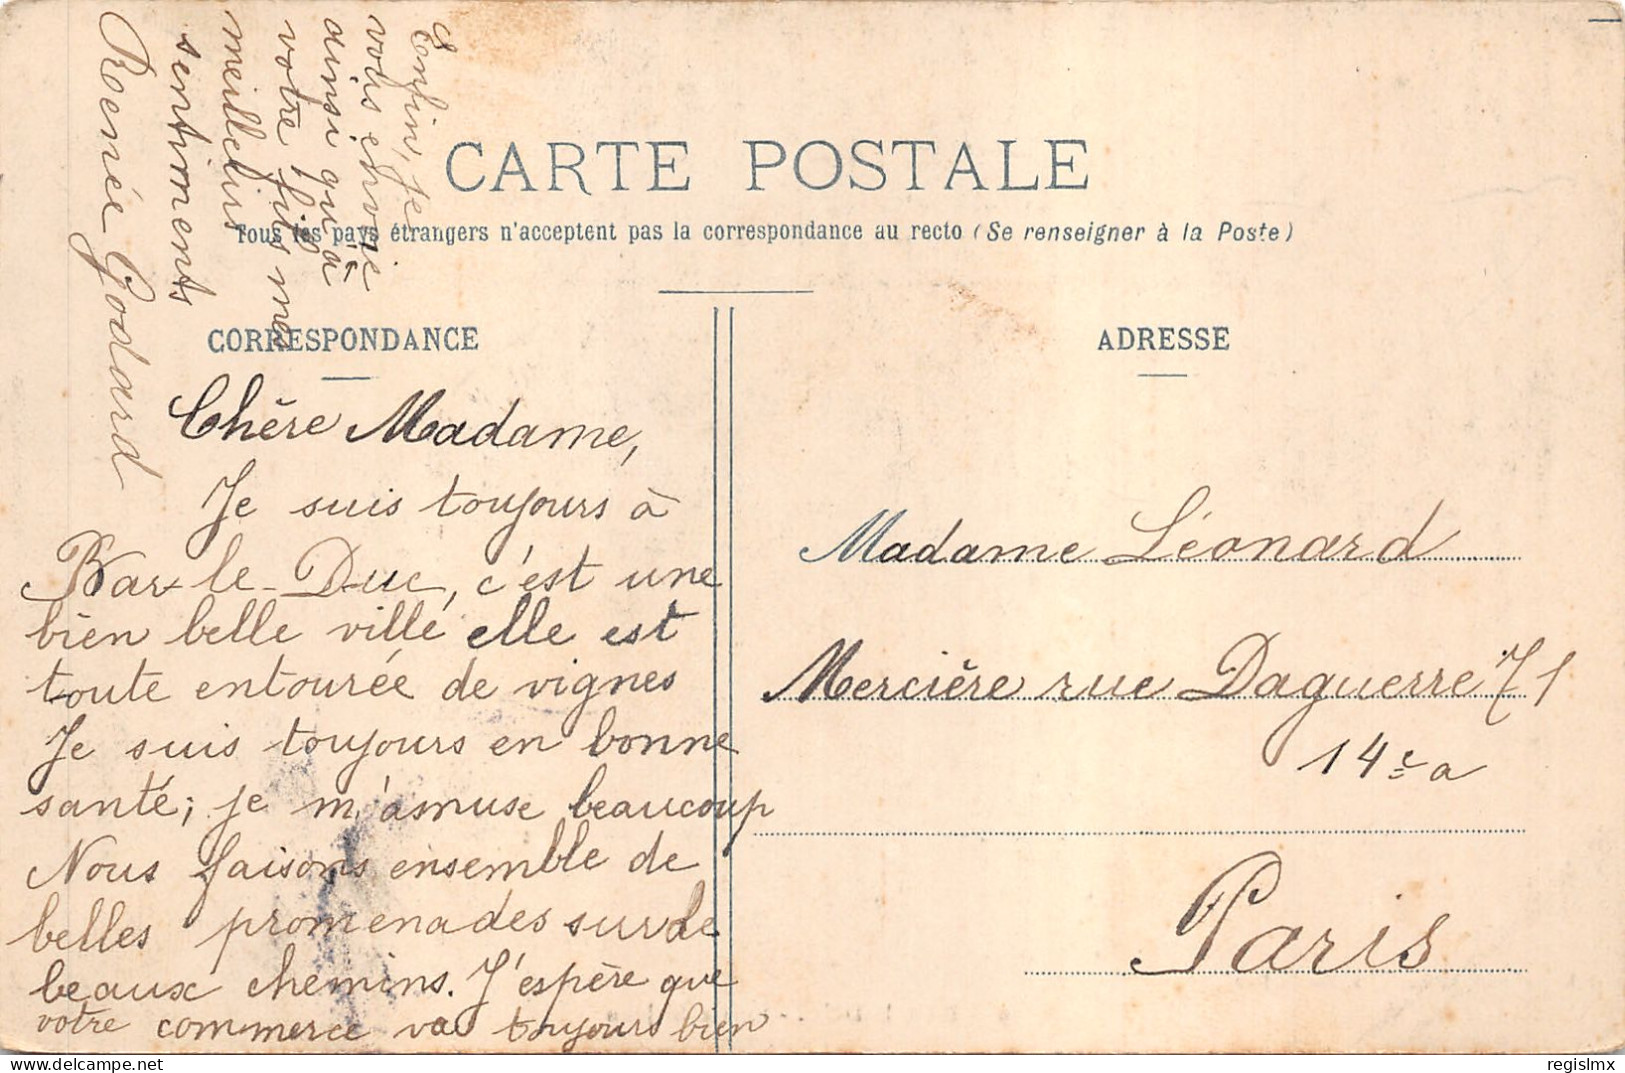 CARTE POSTALE
Tous les pays étrangers n'acceptent pas la correspondance au recto (Se renseigner à la Poste)
CORRESPONDANCE
Chère Madame,
Je suis toujours à
Bar-le-Duc, c'est une
bien belle ville elle est
toute entourée de vignes
Je suis toujours en bonne
santé; je m'amuse beaucoup
Nous faisons ensemble de
belles promenades sur de
beaux chemins. J'espère que
votre commerce va toujours bien
Enfin, je
vous envoie
ainsi qu'à
votre fils mes
meilleurs
sentiments
Renée Godard
ADRESSE
Madame Léonard
Mercière rue Daguerre 71
14e a
Paris
delcampe.net
regislmx